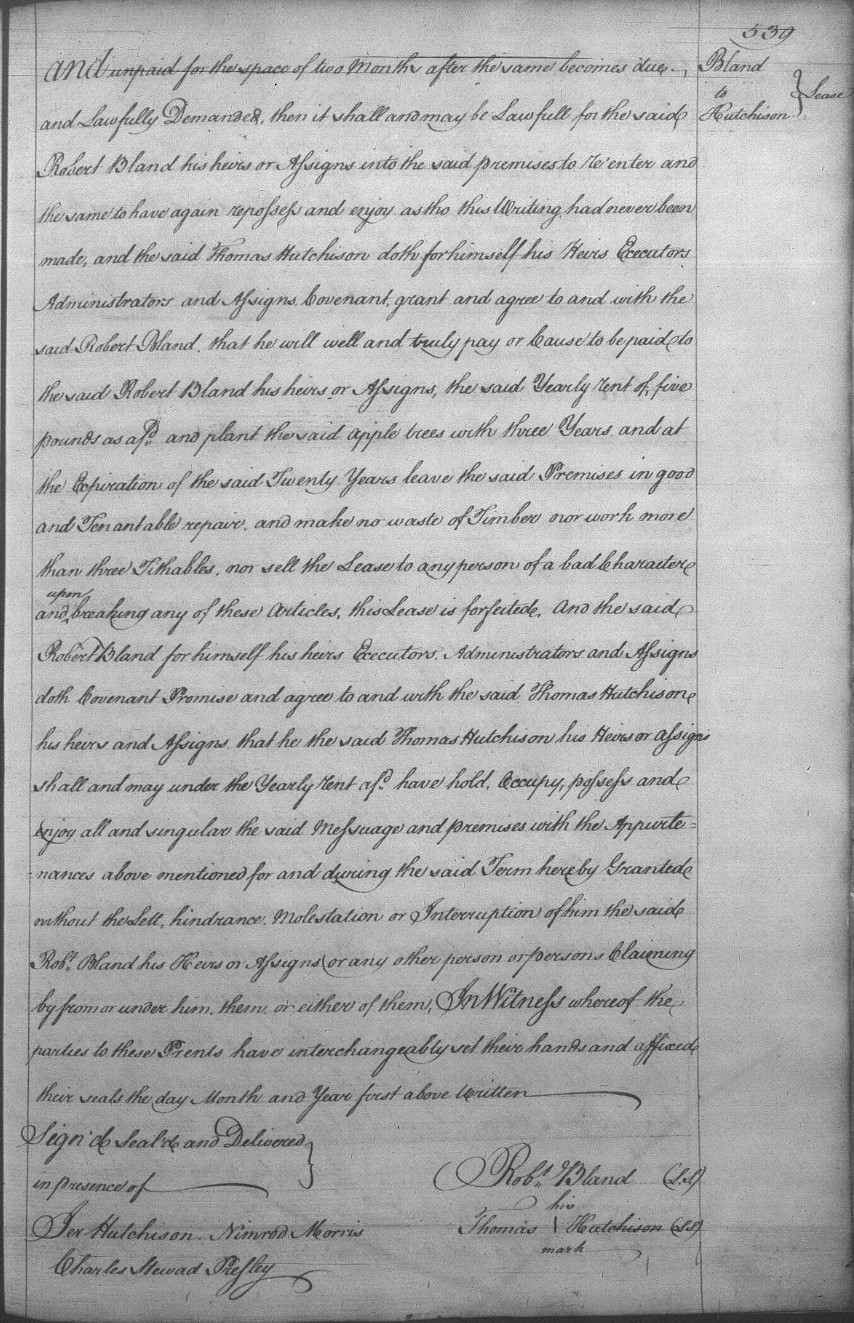 539
Bland
to
Hutchison } Lease
and unpaid for the space of two Months after the same becomes due
and Lawfully Demanded, then it shall and may be Lawfull for the said
Robert Bland his heirs or Assigns into the said premises to re'enter and
the same to have again reposess and enjoy as tho this Writing had never been
made, and the said Thomas Hutchison doth for himself his Heirs Executors
Administrators and Assigns Covenant, grant and agree to and with the
said Robert Bland. that he will well and truly pay or Cause to be paid to
the said Robert Bland his heirs or Assigns, the said Yearly rent of, five
pounds as afsd. and plant the said apple trees with three Years and at
the Expiration of the said Twenty Years leave the said Premises in good
and Tenantable repair. and make no waste of Timber nor work more
than three Tithables. nor sell the Lease to any person of a bad Character
upon
and breaking any of these Articles, this Lease is forfeited. And the said
Robert Bland for himself his heirs Executors. Administrators and Assigns
doth Covenant Promise and agree to and with the said Thomas Hutchison
his heirs and Assigns that he the said Thomas Hutchison his Heirs or assigns
shall and may under the Yearly rent afsd. have hold, Occupy, possess and
enjoy all and singular the said Messuage and premises with the Appurte=
=nances above mentioned for and during the said Term hereby Granted
without the Lett, hindrance. Molestation or Interruption of him the said
Robt. Bland his Heirs or Assigns (or any other person or persons Claiming
by from or under him, them, or either of them, In Witness whereof the
parties to these Prents have interchangeably set their hands and affixed
their seals the day Month and Year first above Written
Sign'd Seal'd and Delivered }
in presence of
Robt. Bland (LS)
Jer Hutchison. Nimrod Morris
his
Thomas | Hutchison (LS)
mark
Charles Stewad Presley